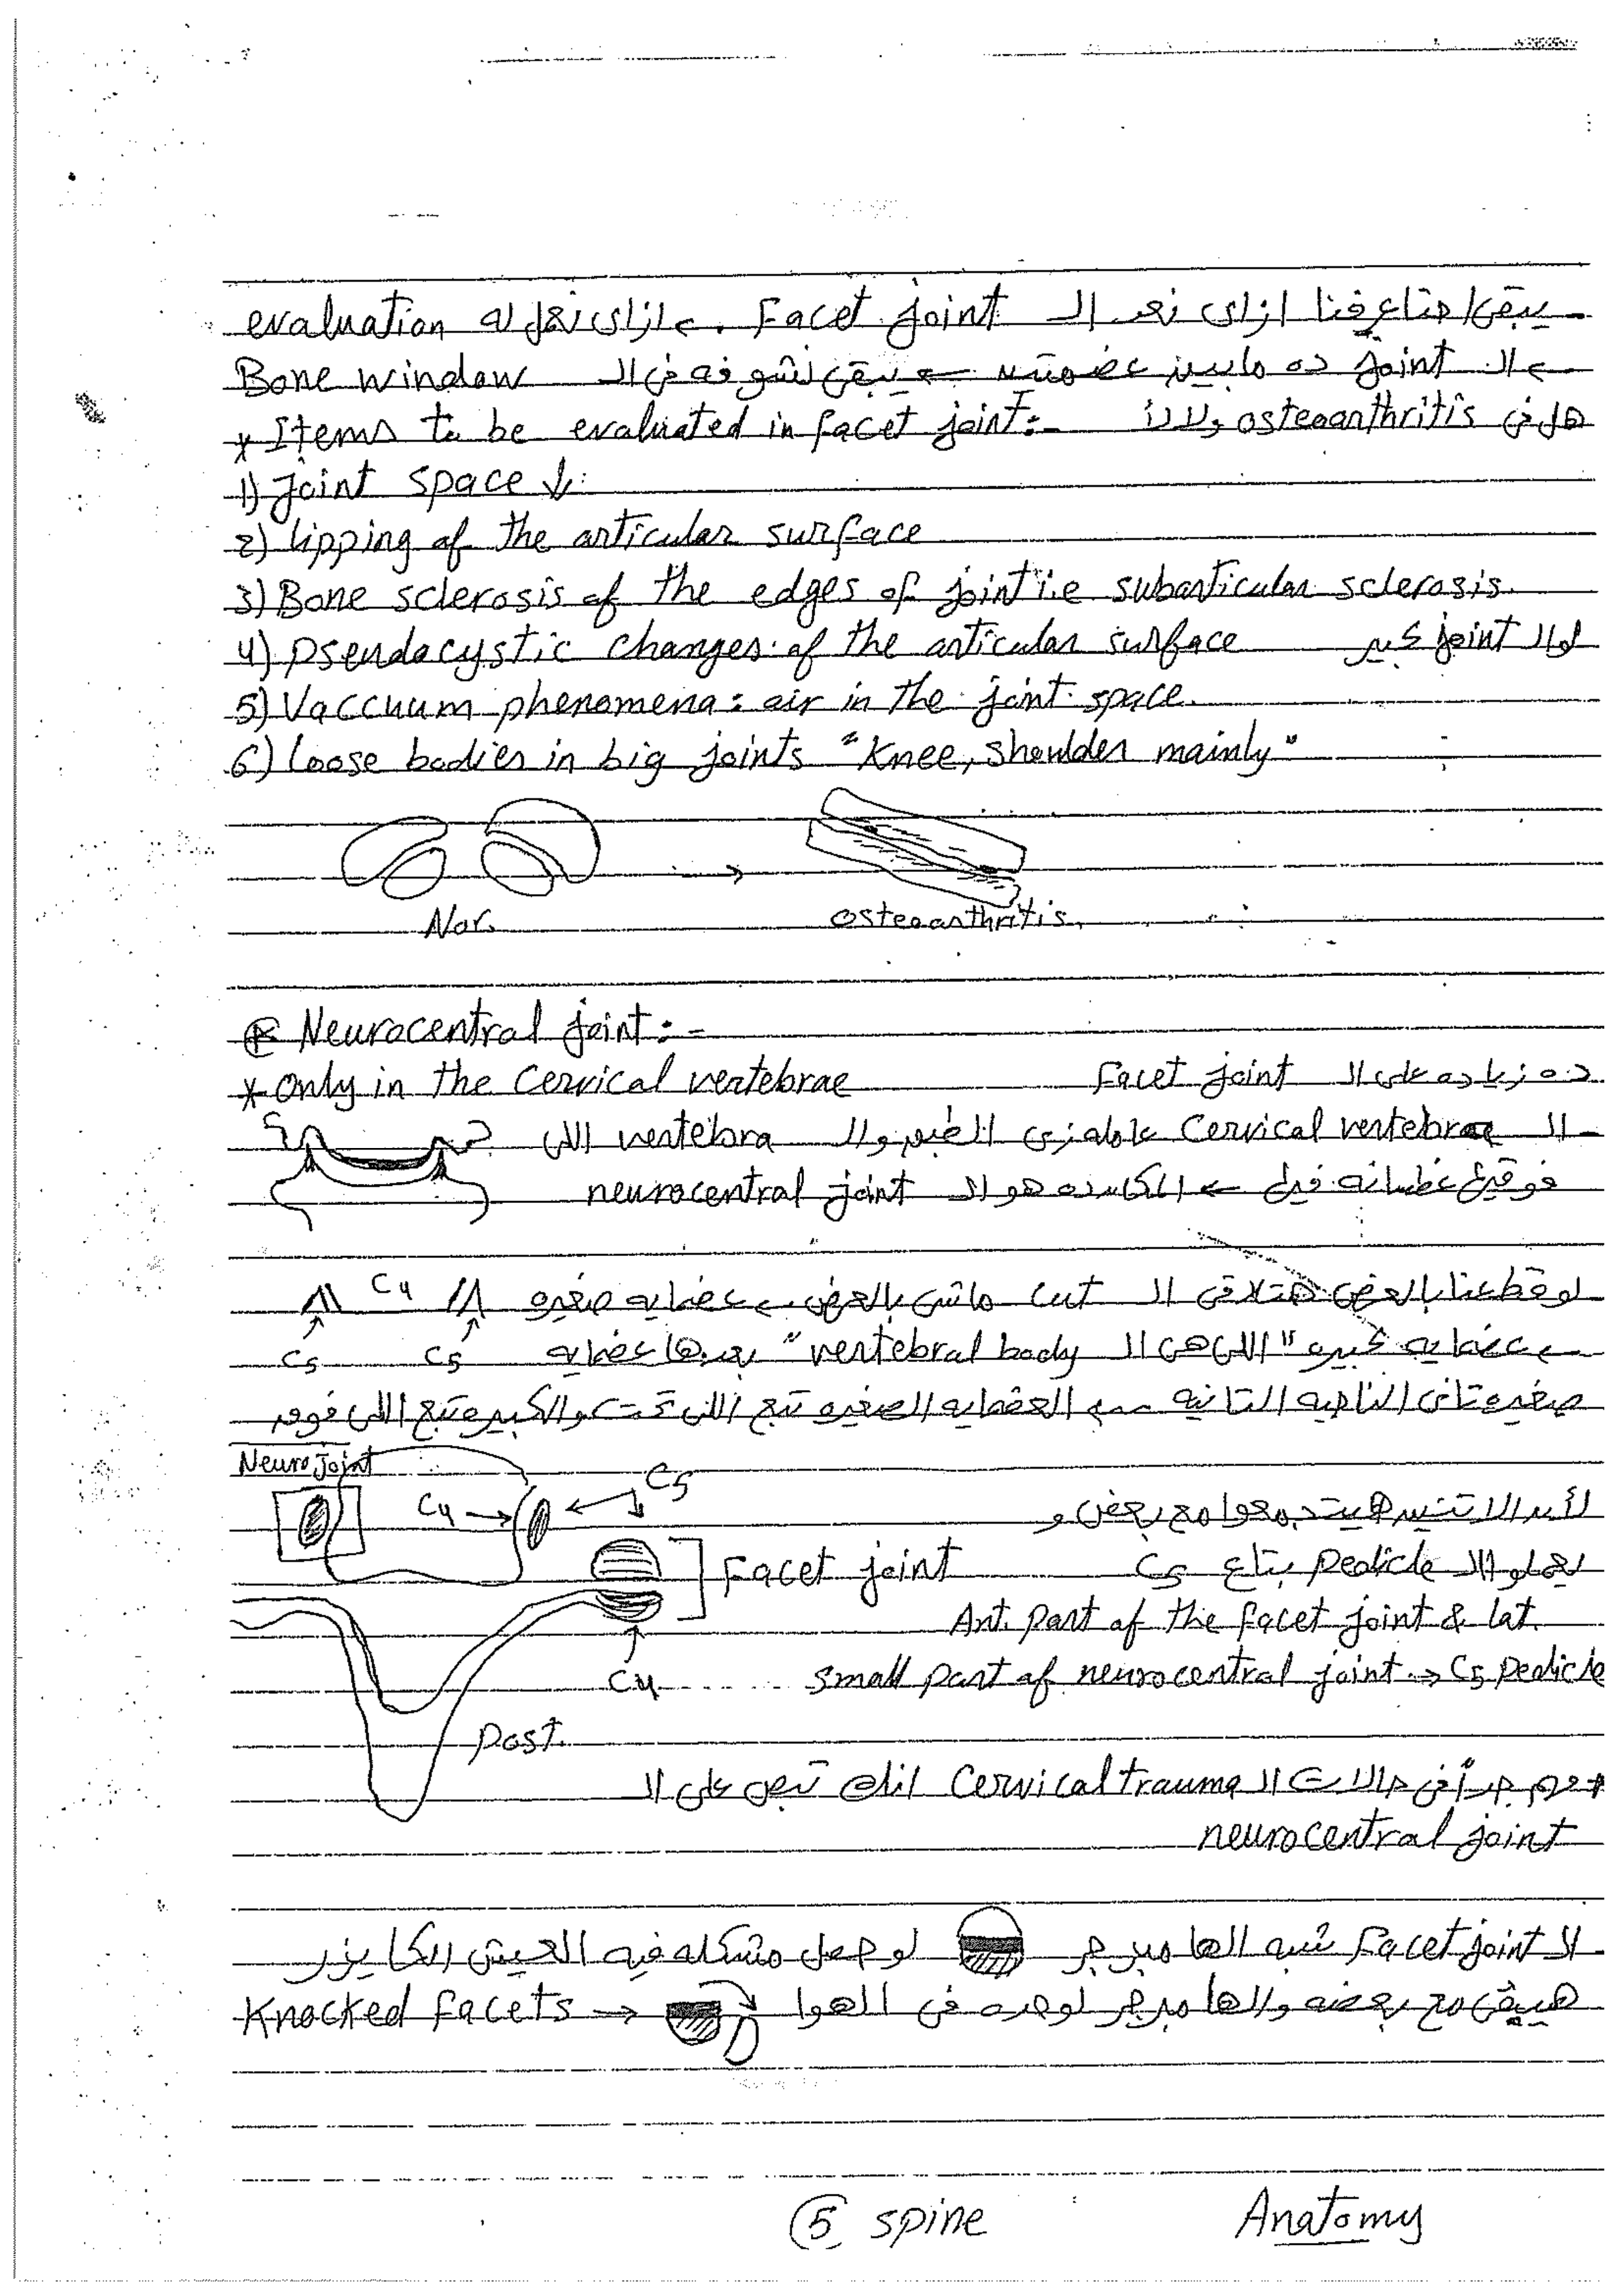 يبقى احنا عرفنا ازاى نعد الـ Facet joint . → ازاى نعمل له evaluation
← الـ joint ده مابين عضمتين ← يبقى نشوفه فى الـ Bone window
* Items to be evaluated in facet joint:- هل فى osteoarthritis ولا لأ
1) Joint space ↓
2) lipping of the articular surface
3) Bone sclerosis of the edges of joint i.e subarticular sclerosis.
4) Pseudocystic changes of the articular surface لو الـ joint كبير
5) Vaccuum phenomena: air in the joint space.
6) loose bodies in big joints "Knee, shoulder mainly"
Nor. → osteoarthritis.
Neurocentral joint:-
* Only in the Cervical vertebrae ده زياده على الـ Facet joint
- الـ Cervical vertebrae عامله زى الـ والـ vertebra اللى
فوقيها ← ده هو الـ neurocentral joint
لو قطعنا بالعرض هتلاقى الـ cut ماشى بالعرض ← عضايه صغيره
C4
C5 C5
← عضايه كبيره "اللى هى الـ vertebral body" بعدها عضايه
صغيره تانى الناحيه التانيه العضايه الصغيره تبع اللى تحت والكبيره تبع اللى فوق
Neuro joint
C4 → ← C5
لأن الاتنين هيتجمعوا مع بعض و
يعملوا الـ Pedicle بتاع C5
Facet joint
Ant. part of the facet joint & lat.
small part of neurocentral joint → C5 Pedicle
C4
Post.
* مهم جداً فى حالات الـ Cervical trauma انك تبص على الـ
neurocentral joint
الـ Facet joint شبه الهامبرجر لو حصل مشكله فيه العيش الكايزر
هيبقى مع بعضه والهامبرجر لوحده فى الهوا → Knocked facets
5 spine Anatomy